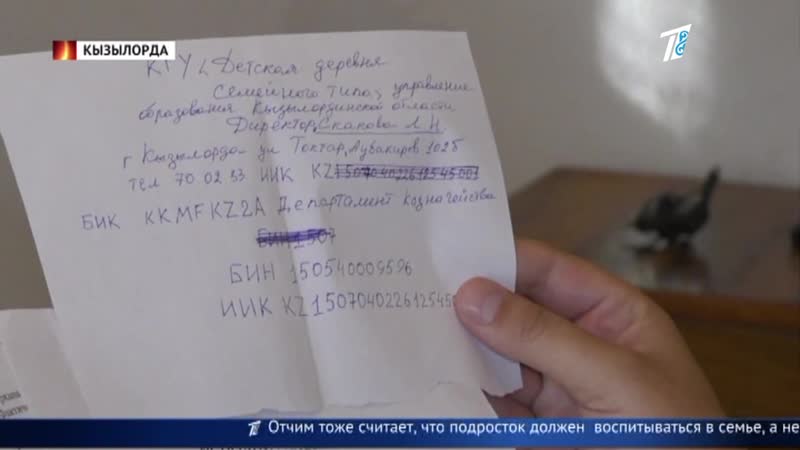 КЫЗЫЛОРДА
КГУ «Детская деревня
семейного типа», управление
образования Кызылординской области
Директор, Скакова Л Н
г Кызылорда ул Токтар, Аубакиров 102б
тел 70 02 33 ИИК KZ
БИК KKMFKZ2A Департамент Казначейства
БИН 1507
БИН 150540009596
ИИК KZ150704022612545
Отчим тоже считает, что подросток должен воспитываться в семье, а не